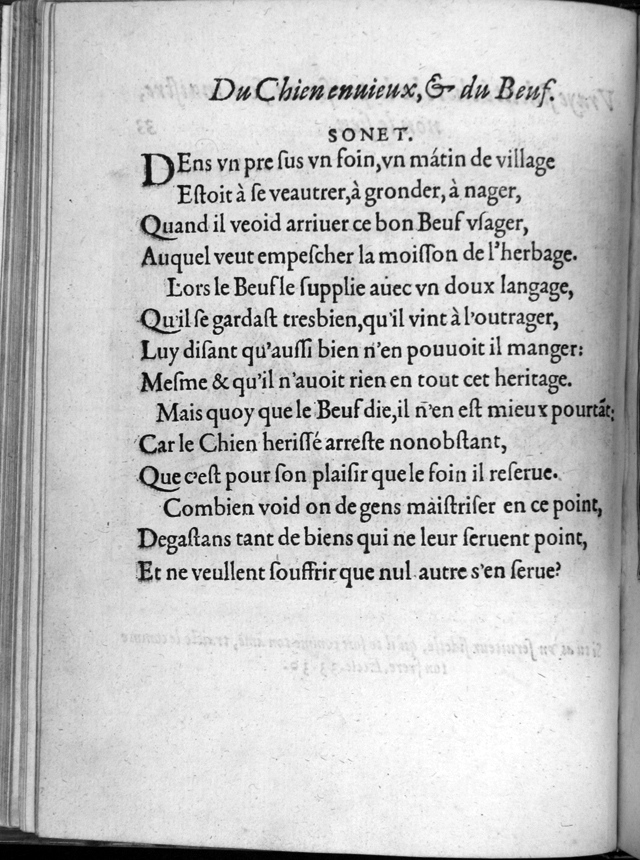 Du Chien enuieux, & du Beuf.
SONET.
DEns vn pre ſus vn foin, vn mátin de village
Eſtoit à ſe veautrer, à gronder, à nager,
Quand il veoid arriuer ce bon Beuf vſager,
Auquel veut empeſcher la moiſſon de l'herbage.
Lors le Beuf le ſupplie auec vn doux langage,
Qu'il ſe gardaſt tresbien, qu'il vint à l'outrager,
Luy diſant qu'auſſi bien n'en pouuoit il manger:
Meſme & qu'il n'auoit rien en tout cet heritage.
Mais quoy que le Beuf die, il n'en eſt mieux pourtãt;
Car le Chien heriſſé arreſte nonobſtant,
Que c'eſt pour ſon plaiſir que le foin il reſerue.
Combien void on de gens maiſtriſer en ce point,
Degaſtans tant de biens qui ne leur ſeruent point,
Et ne veullent ſouffrir que nul autre s'en ſerue?